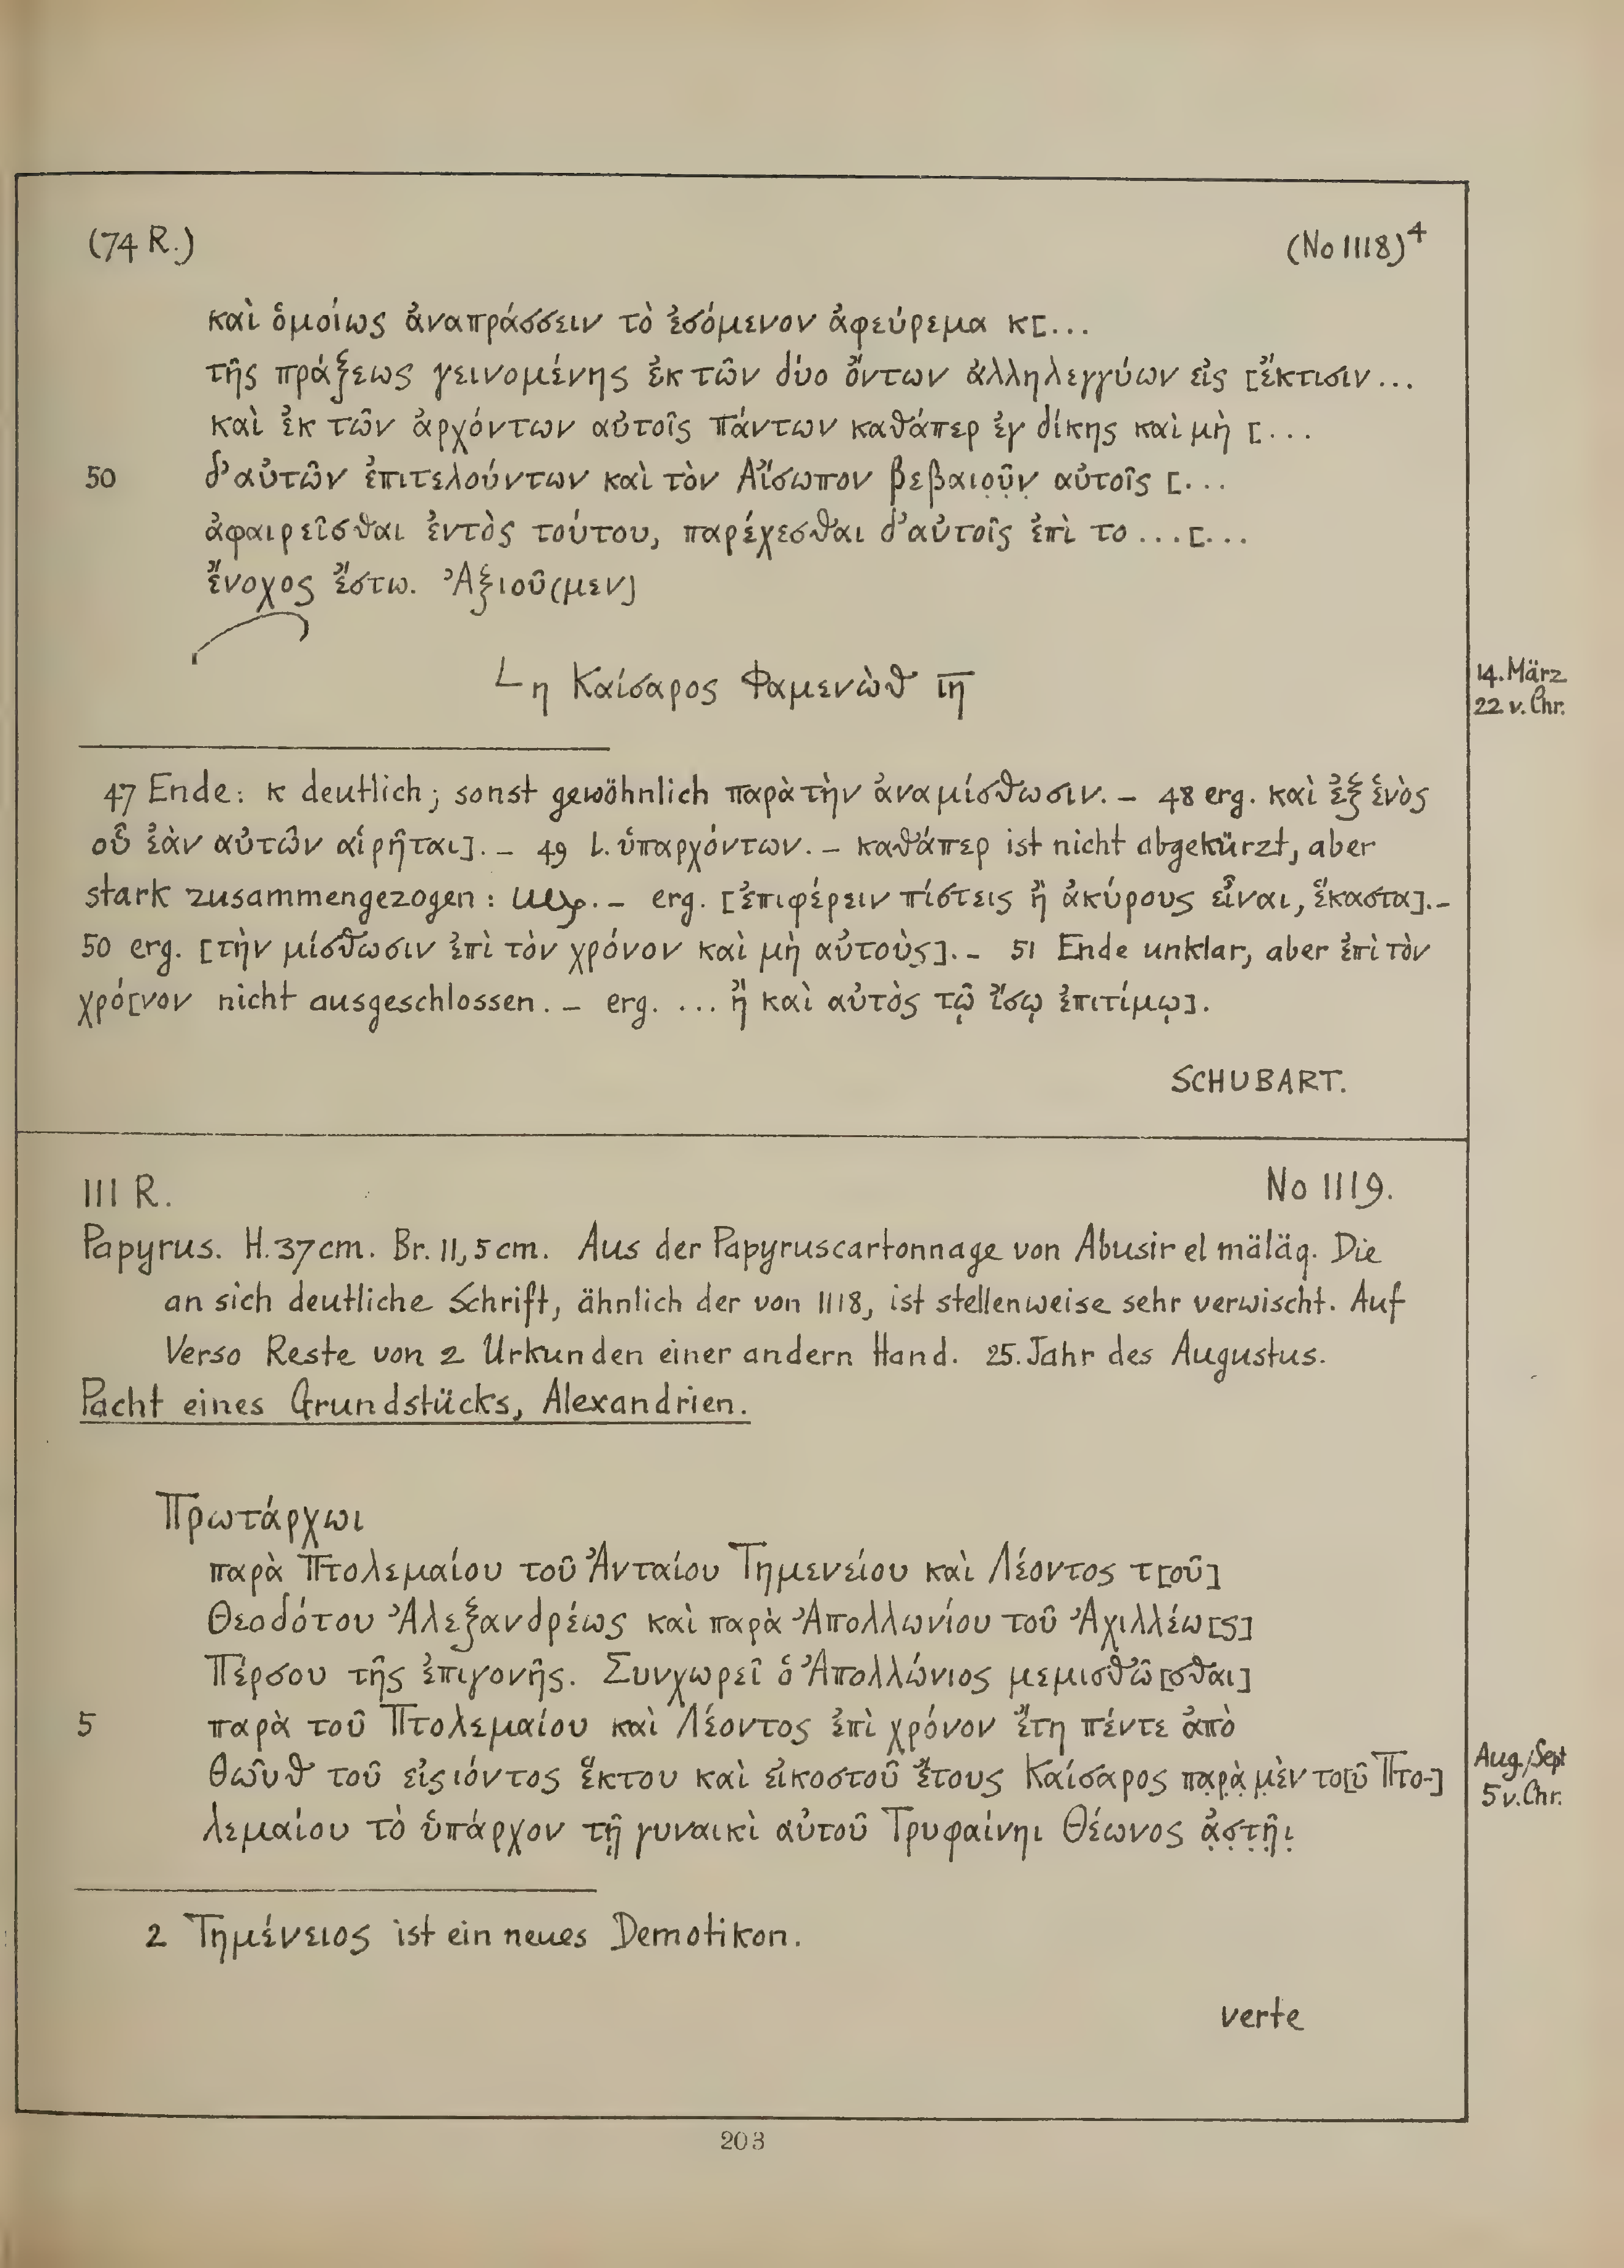 (74 R.) (No 1118)⁴
καὶ ὁμοίως ἀναπράσσειν τὸ ἐσόμενον ἀφεύρεμα κ[...
τῆς πράξεως γεινομένης ἐκ τῶν δύο ὄντων ἀλληλεγγύων εἰς [ἔκτισιν...
καὶ ἐκ τῶν ἀρχόντων αὐτοῖς πάντων καθάπερ ἐγ δίκης καὶ μὴ [...
50 δ' αὐτῶν ἐπιτελούντων καὶ τὸν Αἴσωπον βεβαιọῦ̣ν̣ αὐτοῖς [...
ἀφαιρεῖσθαι ἐντὸς τούτου, παρέχεσθαι δ' αὐτοῖς ἐπὶ το ...[...
ἔνοχος ἔστω. Ἀξιοῦ(μεν]
𐅹 η Καίσαρος Φαμενὼθ ι̅η̅
14. März
22 v. Chr.
47 Ende: κ deutlich; sonst gewöhnlich παρὰ τὴν ἀναμίσθωσιν. – 48 erg. καὶ ἐξ ἑνὸς
οὗ ἐὰν αὐτῶν αἱρῆται]. – 49 L. ὑπαρχόντων. – καθάπερ ist nicht abgekürzt, aber
stark zusammengezogen: . – erg. [ἐπιφέρειν πίστεις ἢ ἀκύρους εἶναι, ἕκαστα]. –
50 erg. [τὴν μίσθωσιν ἐπὶ τὸν χρόνον καὶ μὴ αὐτοὺς]. – 51 Ende unklar, aber ἐπὶ τὸν
χρό[νον nicht ausgeschlossen. – erg. ... ἢ καὶ αὐτὸς τῷ ἴσῳ ἐπιτίμῳ].
SCHUBART.
111 R. No 1119.
Papyrus. H. 37 cm. Br. 11,5 cm. Aus der Papyruscartonnage von Abusir el mäläq. Die
an sich deutliche Schrift, ähnlich der von 1118, ist stellenweise sehr verwischt. Auf
Verso Reste von 2 Urkunden einer andern Hand. 25. Jahr des Augustus.
Pacht eines Grundstücks, Alexandrien.
Πρωτάρχωι
παρὰ Πτολεμαίου τοῦ Ἀνταίου Τημενείου καὶ Λέοντος τ[οῦ]
Θεοδότου Ἀλεξανδρέως καὶ παρὰ Ἀπολλωνίου τοῦ Ἀχιλλέω[ς]
Πέρσου τῆς ἐπιγονῆς. Συνχωρεῖ ὁ Ἀπολλώνιος μεμισθῶ[σθαι]
5 παρὰ τοῦ Πτολεμαίου καὶ Λέοντος ἐπὶ χρόνον ἔτη πέντε ἀπὸ
Θωῦθ τοῦ εἰσιόντος ἕκτου καὶ εἰκοστοῦ ἔτους Καίσαρος π̣α̣ρ̣ὰ̣ μ̣ὲν το[ῦ Πτο-]
Aug./Sept
5 v. Chr.
λεμαίου τὸ ὑπάρχον τῇ γυναικὶ αὐτοῦ Τρυφαίνηι Θέωνος ἀ̣σ̣τ̣ῆ̣ι̣
2 Τημένειος ist ein neues Demotikon.
verte
203